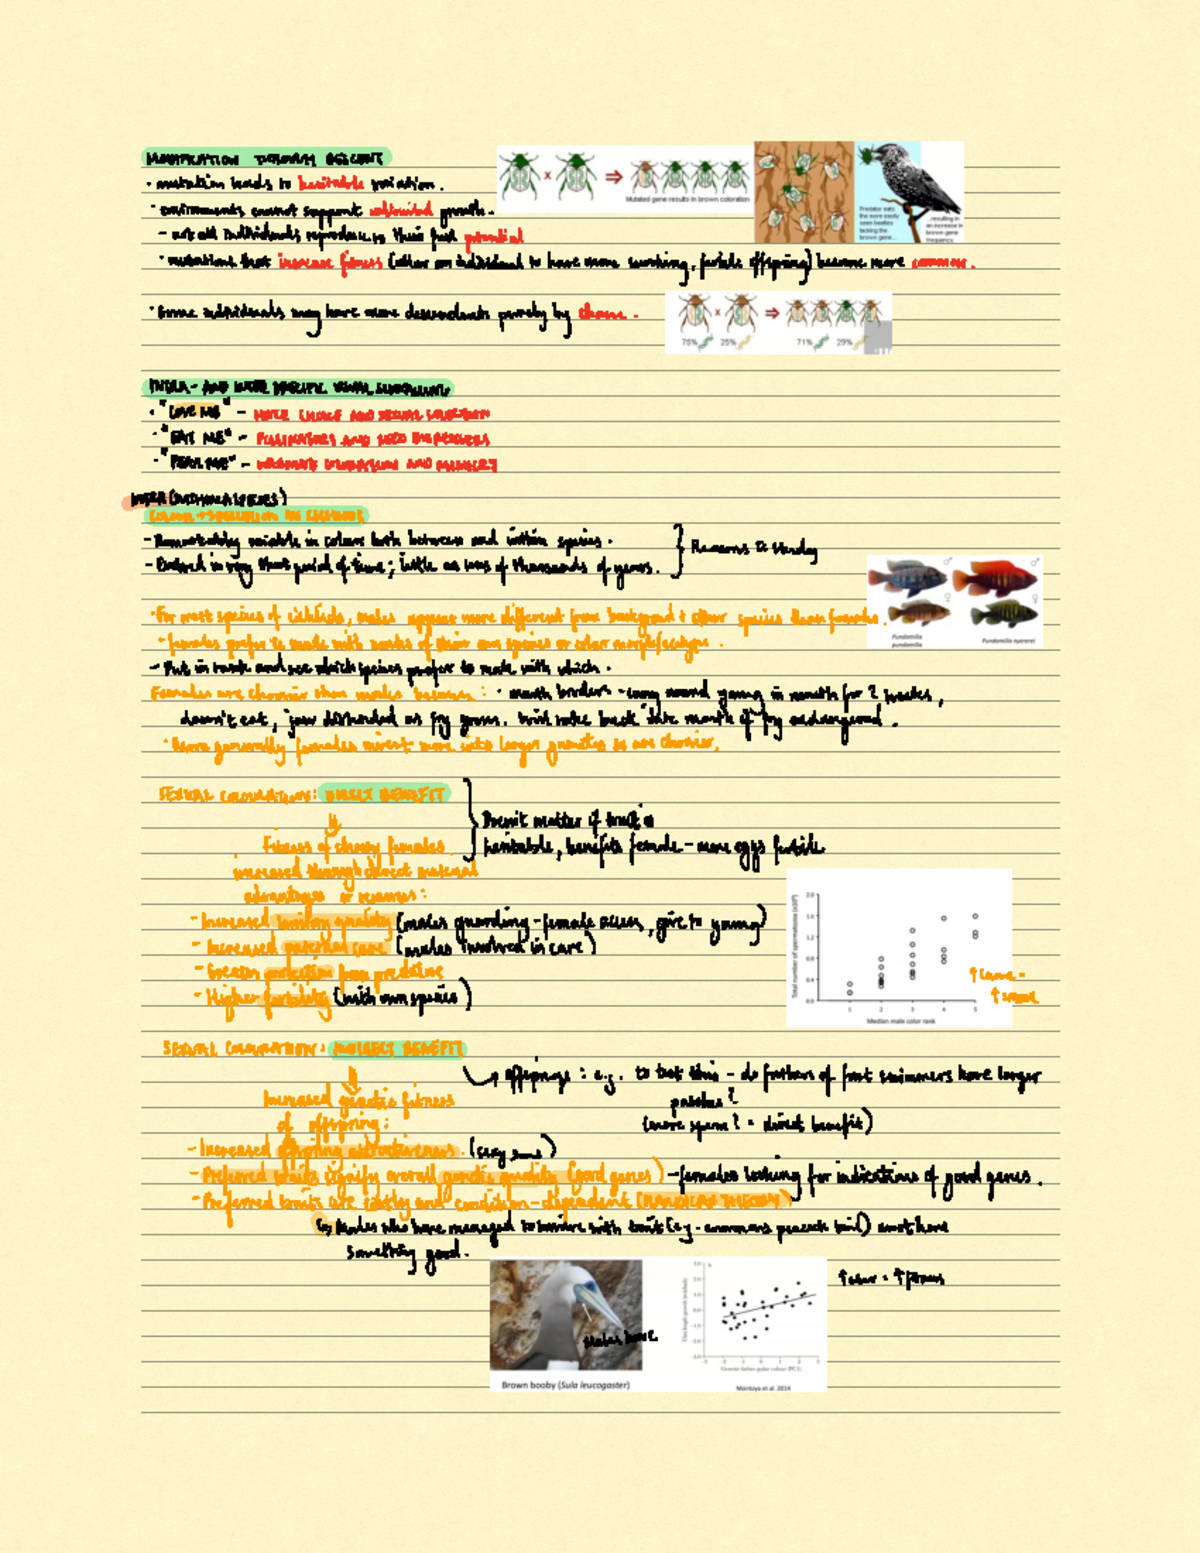 MODIFICATION THROUGH DESCENT
· mutation leads to heritable variation.
· environments cannot support unlimited growth.
- not all individuals reproduce to their full potential
· mutations that increase fitness (allow an individual to have more surviving, fertile offspring) become more common.
Mutated gene results in brown coloration
Predator eats the more easily seen beetles lacking the brown gene...
...resulting in an increase in brown gene frequency
· Some individuals may have more descendants purely by chance.
75% 25% 71% 29%
INTRA- AND INTER SPECIFIC VISUAL SIGNALLING
· "LOVE ME" - MATE CHOICE AND SEXUAL SELECTION
· "EAT ME" - POLLINATORS AND SEED DISPERSERS
· "FEAR ME" - WARNING COLOURATION AND MIMICRY
INTRA (WITHIN A SPECIES)
COLOUR EVOLUTION IN CICHLIDS
- Remarkably variable in colour both between and within species.
- Evolved in very short period of time; little as tens of thousands of years.
} Reasons to study
Pundamilia pundamilia
Pundamilia nyererei
· For most species of cichlids, males appear more different from background + other species than females.
· females prefer to mate with males of their own species or colour morph/ecotype.
- Put in tank and see which species prefer to mate with which.
Females are choosier than males because: · mouth brooders - carry around young in mouth for 2 weeks,
doesn't eat, jaw distended as fry grow. Will take back into mouth if fry endangered.
· More generally females invest more into larger gametes so are choosier.
SEXUAL COLOURATION: DIRECT BENEFIT
Fitness of choosy females
increased through direct material
advantages or resources:
} Doesn't matter if trait is
heritable, benefits female - more eggs fertile.
- Increased territory quality (males guarding - female access, give to young)
- Increased parental care (males involved in care)
- Greater protection from predators
- Higher fertility (with own species)
Total number of spermatozoa (x10⁶)
2.0
1.6
1.2
0.8
0.4
0.0
1 2 3 4 5
Median male color rank
SEXUAL COLOURATION: INDIRECT BENEFIT
Increased genetic fitness
of offspring:
offspring: e.g. to test this - do fathers of fast swimmers have larger
patches?
(more sperm? = direct benefit)
- Increased offspring attractiveness. (sexy sons)
- Preferred traits signify overall genetic quality (good genes) - females looking for indications of good genes.
- Preferred traits are costly and condition-dependent (HANDICAP THEORY)
Males who have managed to survive with trait (e.g - enormous peacock tail) must have
something good.
Males have
Brown booby (Sula leucogaster)
Genetic father gular colour (PC1)
Montoya et al. 2014